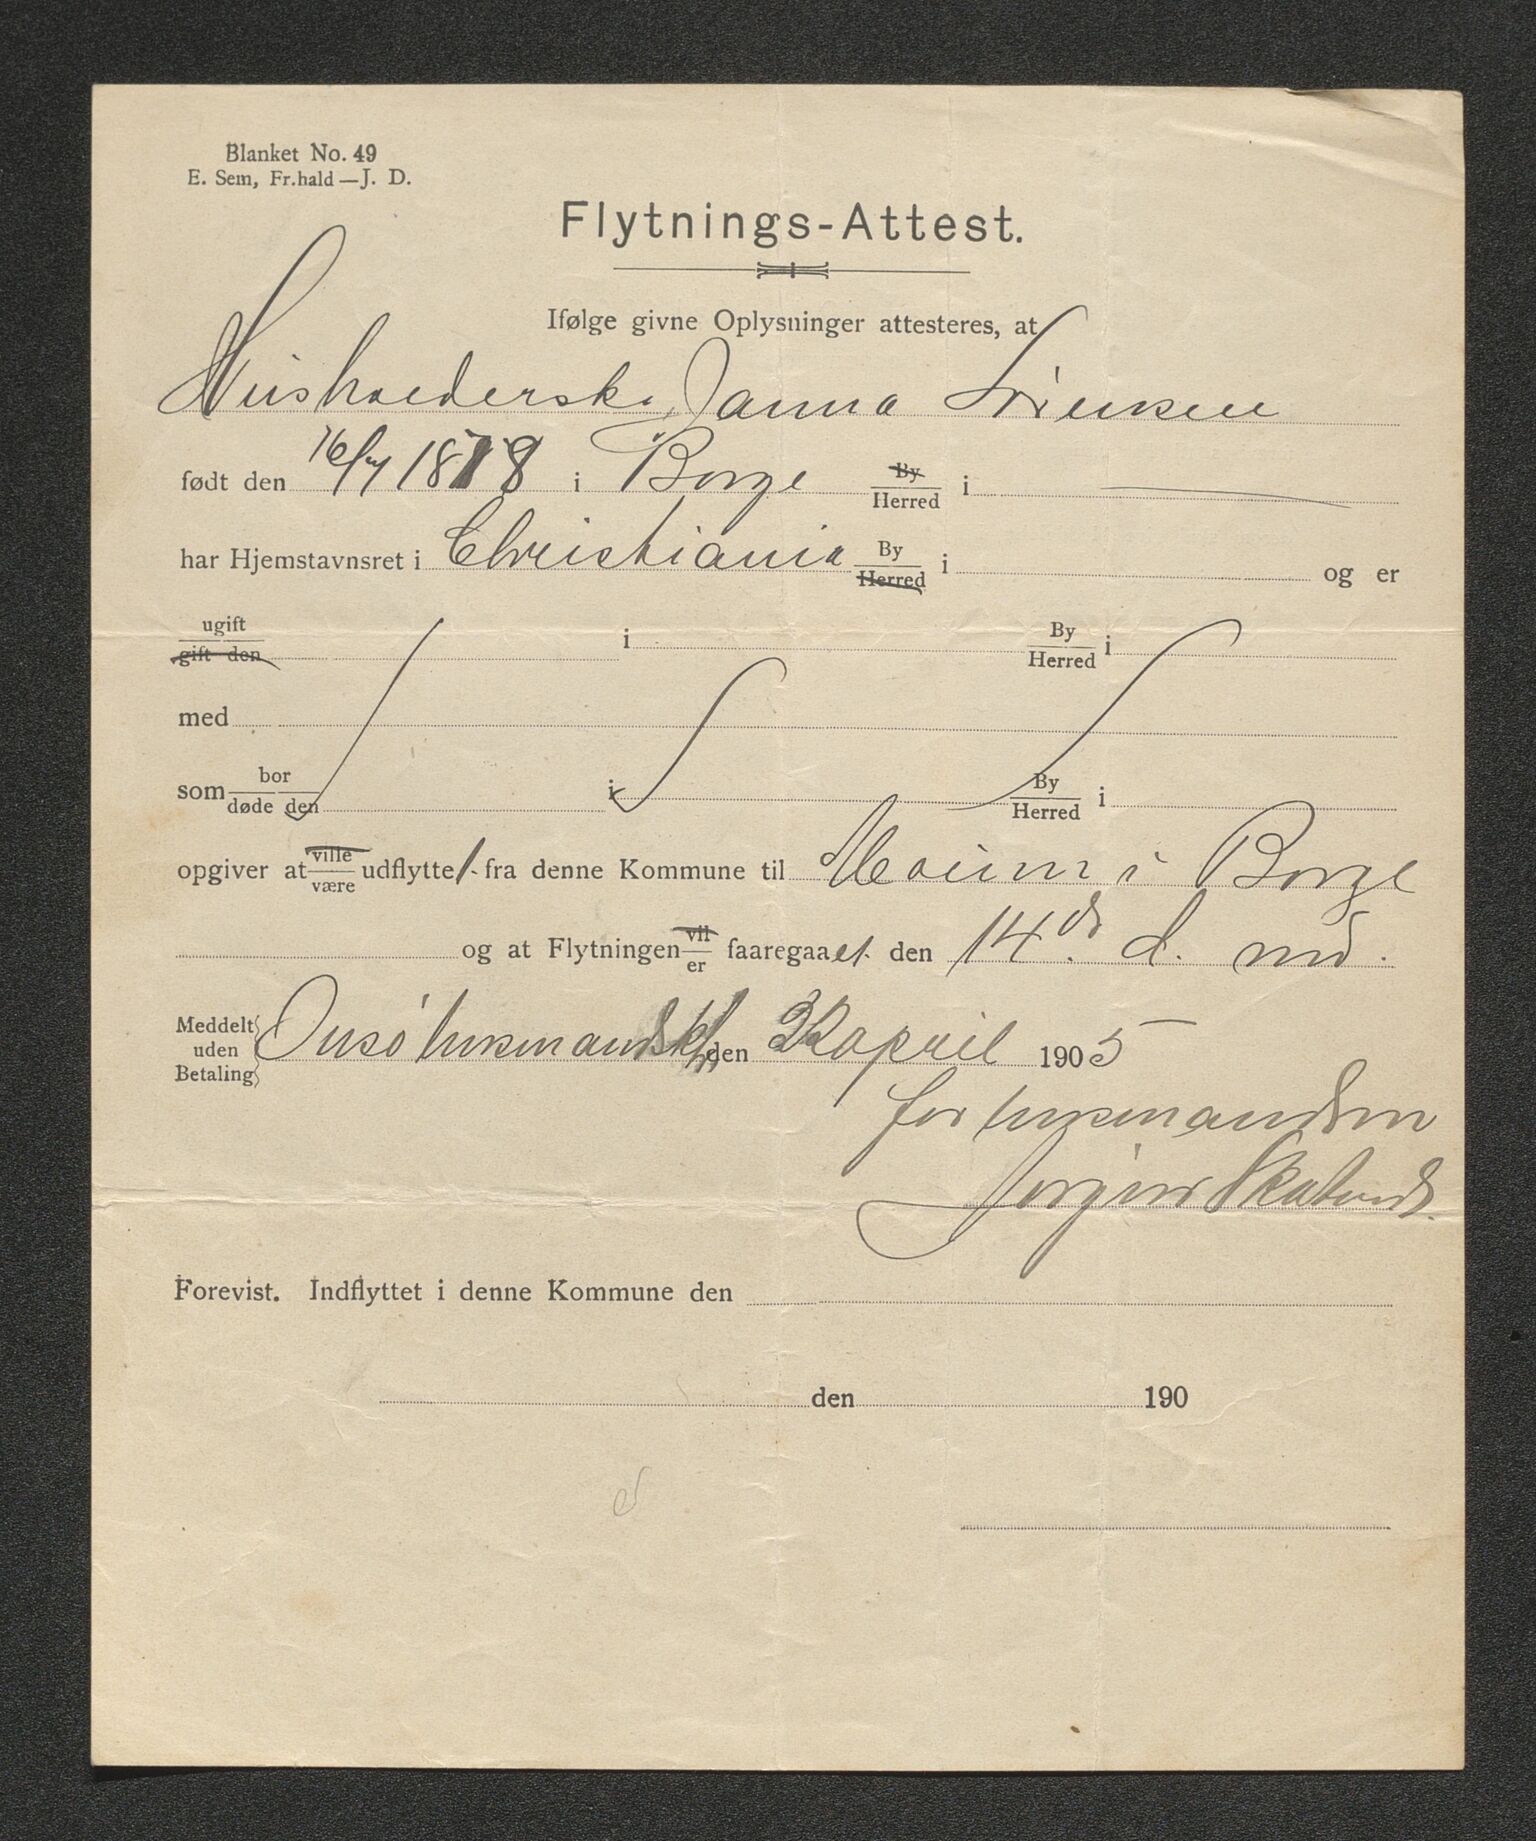 Blanket No. 49
E. Sem, Fr.hald — J. D.
Flytnings-Attest.
Ifølge givne Oplysninger attesteres, at
Husholderske Janna Sørensen
født den 16/4 1878 i Borge By Herred i
har Hjemstavnsret i Christiania By Herred i og er
ugift gift den i By Herred i
med
som bor døde den i By Herred i
opgiver at ville være udflyttet fra denne Kommune til Moum i Borge
og at Flytningen vil er faaregaaet den 14de d. md.
Meddelt uden Betaling Onsø lensmandsk den 22 april 1905
for lensmanden
Jørgen
Forevist. Indflyttet i denne Kommune den
den 190